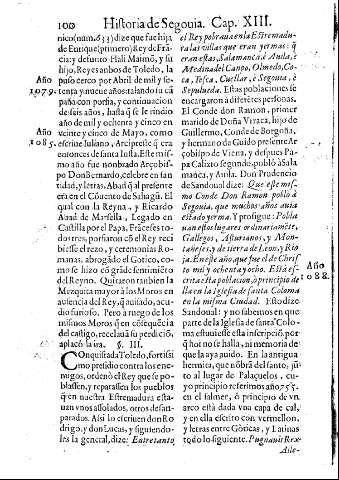 100 Historia de Segouia. Cap. XIII.
nico (num. 633) dize que fue hija
de Enrique (primero) Rey de Frã-
cia; y defunto Hali Maimõ, y su
hijo, Reyes anbos de Toledo, la
puso cerco por Abril de mil y se-
Año 1079.
tenta y nueue años: talando su cã
paña con porfia, y continuacion
de seis años, hasta q̃ se le rindio
año de mil y ochenta y cinco en
veinte y cinco de Mayo, como
Año 1085.
escriue Juliano, Arcipreste q̃ era
entonces de santa Iusta. Este mis-
mo año fue nonbrado Arçobis-
po Don Bernardo, celebre en san
tidad, y letras. Abad q̃ al presente
era en el Cõuento de Sahagũ. El
qual con la Reyna, y Ricardo
Abad de Marsella, Legado en
Castilla por el Papa, Frãceses to-
dos tres, porfiaron cõ el Rey reci
biesse el rezo, y ceremonias Ro-
manas, abrogãdo el Gotico, co-
mo se hizo cõ grãde sentimiẽto
del Reyno. Quitaron tanbien la
Mezquita mayor à los Moros en
ausencia del Rey, q̃ auisado, acu-
dio furioso. Pero a ruego de los
mismos Moros q̃ en cõsequẽcia
del castigo, recelauã su perdiciõ,
aplacó la ira. §. III.
COnquistada Toledo, fortifi-
có presidio contra los ene-
migos, ordenò el Rey que se po-
blassen, y reparassen los pueblos
q̃ en nuestra Estremadura esta-
uan vnos assolados, otros desan-
parados. Assi lo escriuen don Ro
drigo, y don Lucas, y siguiendo-
les la general, dize: Entretanto
el Rey poblaua en la Estremadu-
ra las villas que eran yermas: q̃
eran estas, Salamanca è Auila, è
Medina del Campo, Olmedo, Co-
ca, Yscar, Cuellar, è Segouia, è
Sepulueda. Estas poblaciones se
encargaron a diferẽtes personas.
El Conde don Ramon, primer
marido de Doña Vrraca, hijo de
Guillermo, Conde de Borgoña,
y hermano de Guido presente Ar
çobispo de Viena, y despues Pa-
pa Calixto segundo, pobló à Sala
manca, y Auila. Don Prudencio
de Sandoual dize: Que este mis-
mo Conde Don Ramon poblò à
Segouia, que muchos años auia
estado yerma. Y prosigue: Pobla
uan estos lugares ordinariamẽte,
Gallegos, Asturianos, y Mon-
tañeses, y de tierra de Leon, y Rio
ja. En este año, que fue el de Chris
Año 1088.
to mil y ochenta y ocho. Està es-
crita esta poblacion, ò principio de
lla en la Iglesia de santa Coloma
en la misma Ciudad. Esto dize
Sandoual: y no sabemos en que
parte de la Iglesia de santa Colo-
ma estuuiesse esta inscripciõ, por
q̃ hoi no se halla, ni memoria de
que la aya auido. En la antigua
hermita, que nõbrã del santo, jũ-
to al lugar de Palaçuelos, cu-
yo principio referimos año 755.
en el salmer, ò principio de vn
arco està dada vna capa de cal,
y en ella escrito con vermellon,
y letras entre Góticas, y Latinas
todo lo siguiente. Pugnauit Rex
Alde-